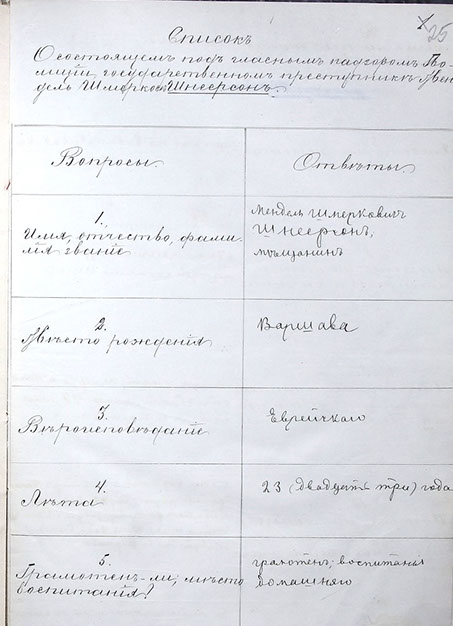 25
Списокъ
О состоящемъ подъ гласнымъ надзоромъ По-
лиціи государственномъ преступникѣ Мен-
дель Шмерковѣ Шнеерсонъ.
Вопросы.
Отвѣты.
1.
Имя, отчество, фами-
лія званіе
Мендель Шмерковичъ
Шнеерсонъ,
мѣщанинъ
2.
Мѣсто рожденія
Варшава
3.
Вѣроисповѣданіе
Еврейскаго
4.
Лѣта
23 (двадцать три) года
5.
Грамотенъ-ли, мѣсто
воспитанія?
грамотен, воспитанья
домашняго